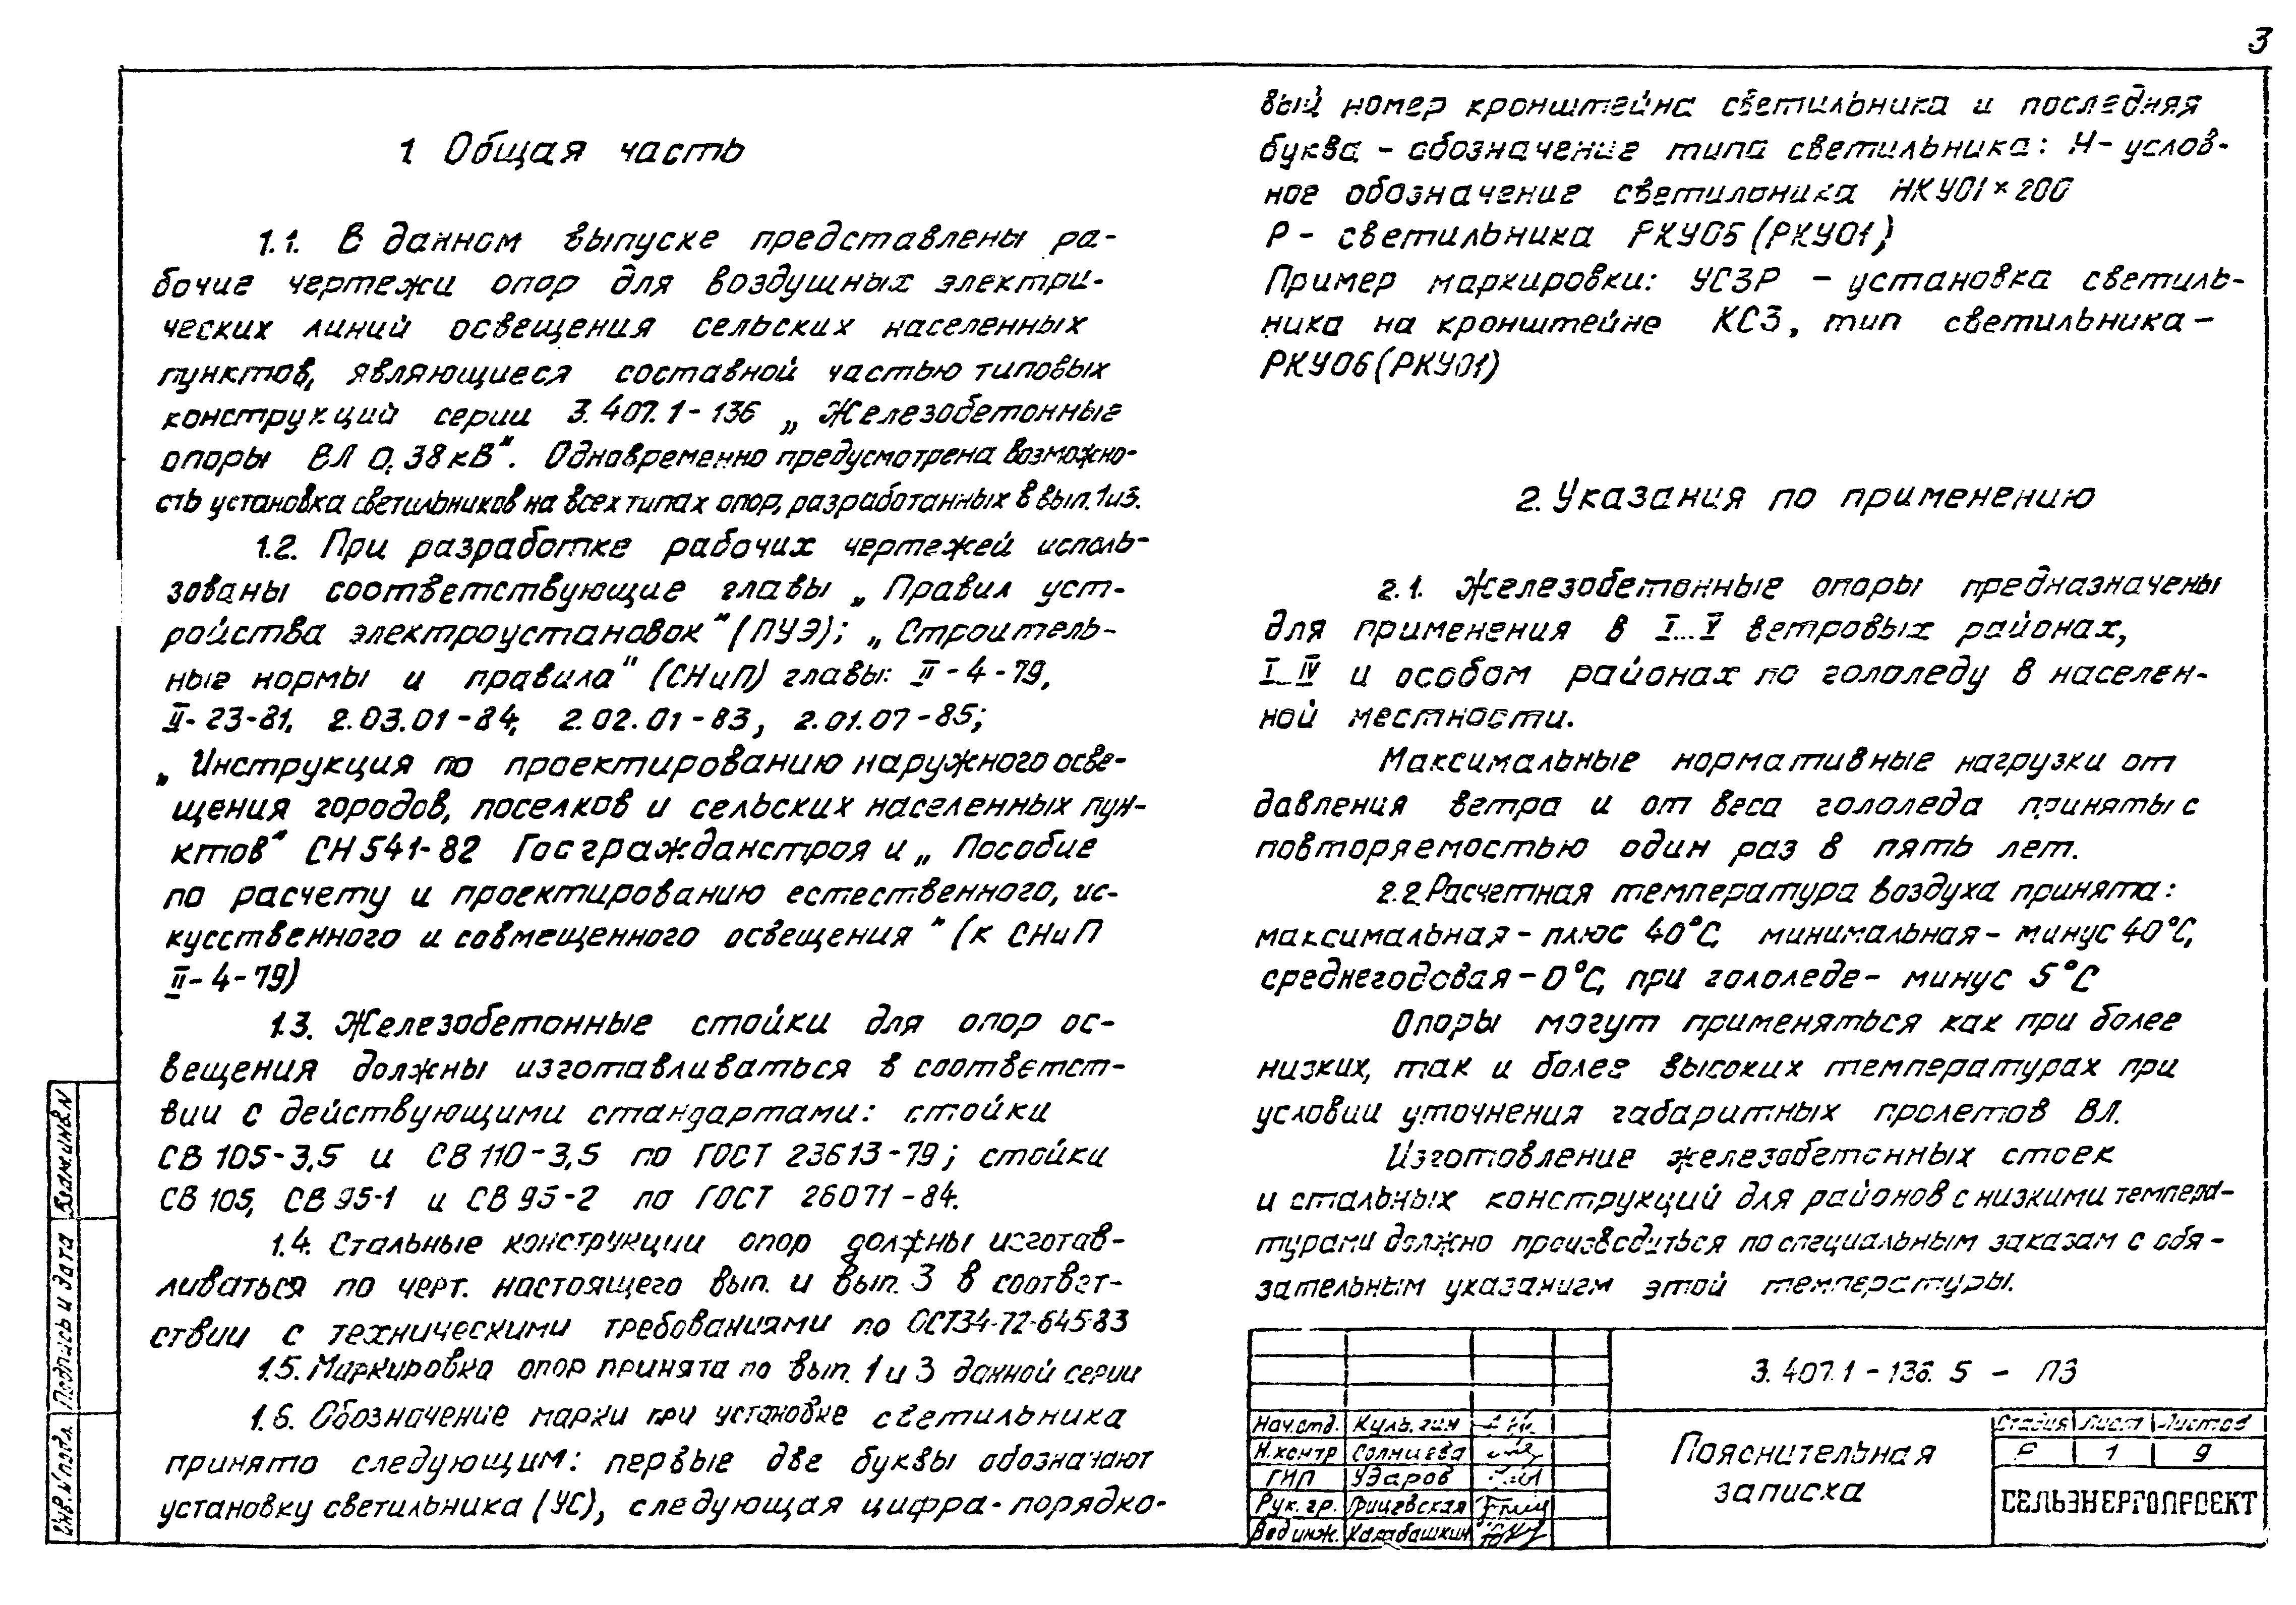 3
1 Общая часть
1.1. В данном выпуске представлены ра-
бочие чертежи опор для воздушных электри-
ческих линий освещения сельских населенных
пунктов, являющиеся составной частью типовых
конструкций серии 3.407.1-136 „Железобетонные
опоры ВЛ 0,38кВ". Одновременно предусмотрена возможно-
сть установка светильников на всех типах опор, разработанных в вып. 1 и 3.
1.2. При разработке рабочих чертежей исполь-
зованы соответствующие главы „Правил уст-
ройства электроустановок" (ПУЭ); „Строитель-
ные нормы и правила" (СНиП) главы: II-4-79,
II-23-81, 2.03.01-84, 2.02.01-83, 2.01.07-85;
„Инструкция по проектированию наружного осве-
щения городов, поселков и сельских населенных пун-
ктов" СН 541-82 Госгражданстроя и „Пособие
по расчету и проектированию естественного, ис-
кусственного и совмещенного освещения" (к СНиП
II-4-79)
1.3. Железобетонные стойки для опор ос-
вещения должны изготавливаться в соответст-
вии с действующими стандартами: стойки
СВ 105-3,5 и СВ 110-3,5 по ГОСТ 23613-79; стойки
СВ 105, СВ 95-1 и СВ 95-2 по ГОСТ 26071-84.
1.4. Стальные конструкции опор должны изготав-
ливаться по черт. настоящего вып. и вып. 3 в соответ-
ствии с техническими требованиями по ОСТ34-72-645-83
1.5. Маркировка опор принята по вып. 1 и 3 данной серии
1.6. Обозначение марки при установке светильника
принято следующим: первые две буквы обозначают
установку светильника (УС), следующая цифра - порядко-
вый номер кронштейна светильника и последняя
буква - обозначение типа светильника: Н - услов-
ное обозначение светилоника НКУ01×200
Р - светильника РКУ06 (РКУ01)
Пример маркировки: УС3Р - установка светиль-
ника на кронштейне КС3, тип светильника -
РКУ06 (РКУ01)
2. Указания по применению
2.1. Железобетонные опоры предназначены
для применения в I...V ветровых районах,
I...IV и особом районах по гололеду в населен-
ной местности.
Максимальные нормативные нагрузки от
давления ветра и от веса гололеда приняты с
повторяемостью один раз в пять лет.
2.2. Расчетная температура воздуха принята:
максимальная - плюс 40°С, минимальная - минус 40°С,
среднегодовая - 0°С, при гололеде - минус 5°С
Опоры могут применяться как при более
низких, так и более высоких температурах при
условии уточнения габаритных пролетов ВЛ.
Изготовление железобетонных стоек
и стальных конструкций для районов с низкими темпера-
турами должно производиться по специальным заказам с обя-
зательным указанием этой температуры.
3.407.1-136.5 - ПЗ
Нач.отд. Кулыгин
Н.контр Солнцева
ГИП Ударов
Рук.гр.
Вед инж. Калабашкин
Пояснительная
записка
Стадия Лист Листов
Р 1 9
СЕЛЬЭНЕРГОПРОЕКТ
Взам.инв.N
Подпись и дата
Инв.N подл.